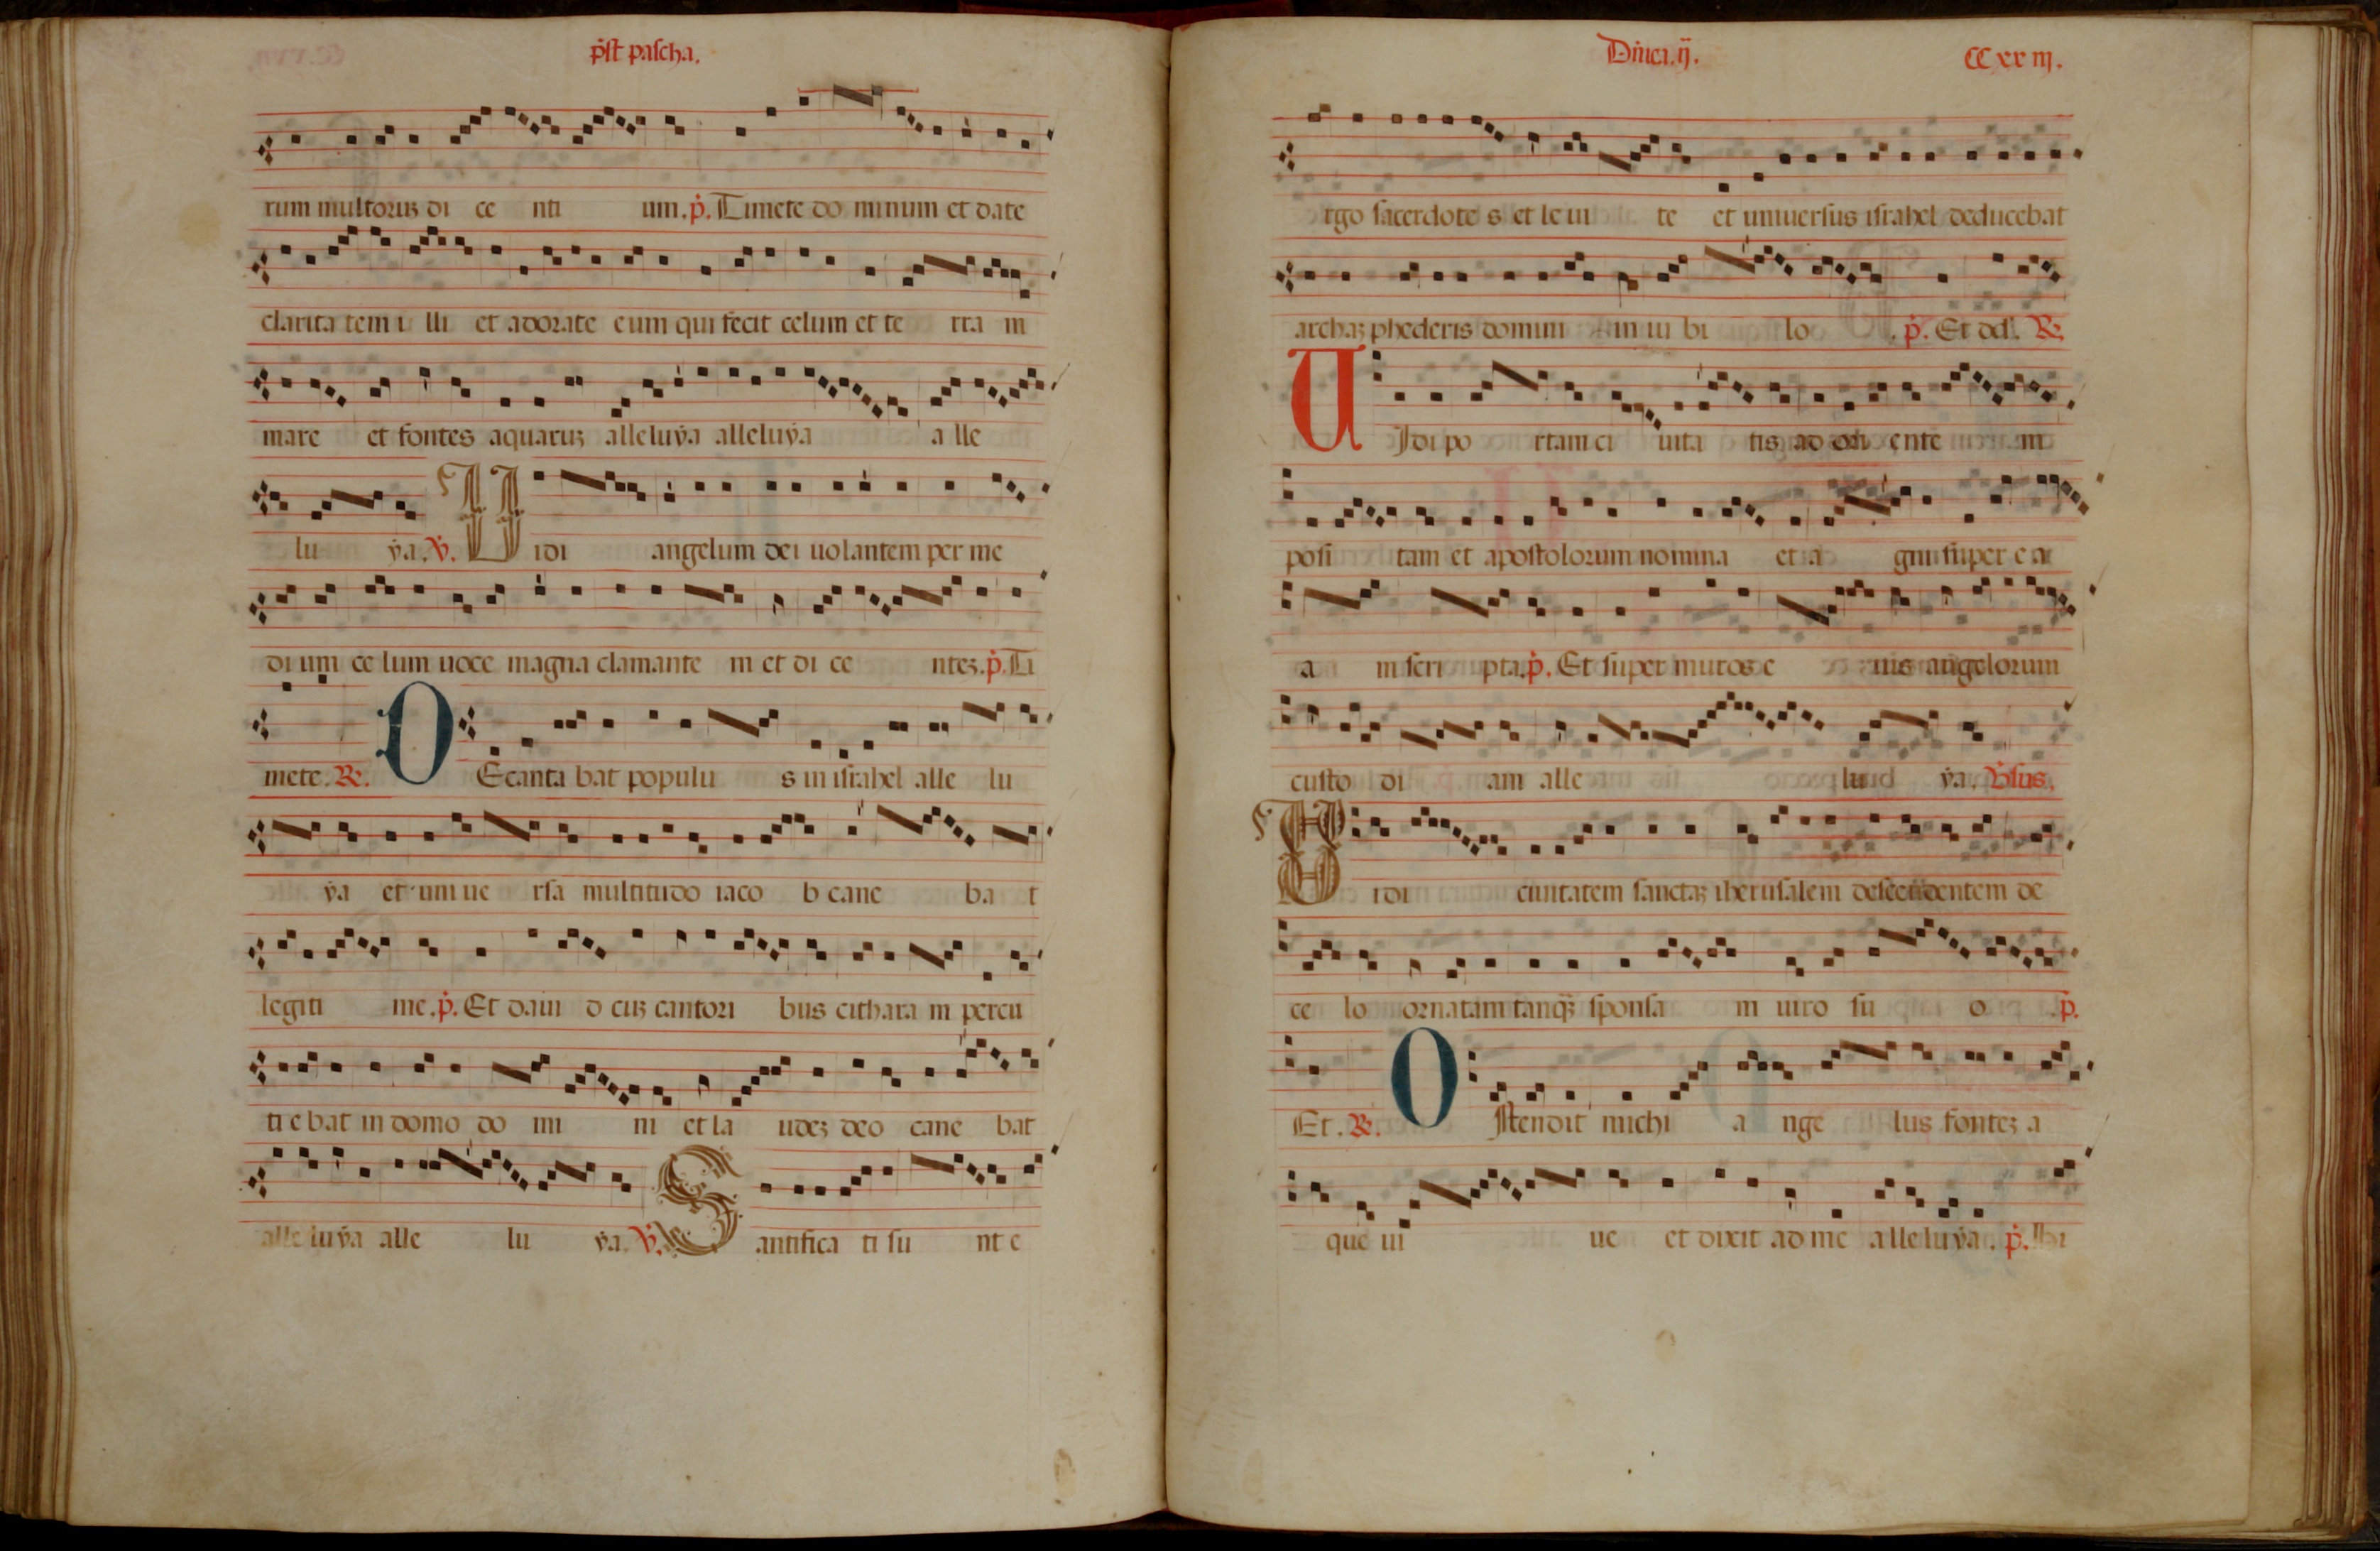 ṗst pascha.
rum multoruꝫ di ce nti um. ṗ. Timete do minum et date
clarita tem i lli et adorate eum qui fecit celum et te rra m
mare et fontes aquaruꝫ alleluẏa alleluẏa a lle
lu ẏa. v̇. Uidi angelum dei uolantem per me
di um ce lum uoce magna clamante m et di ce nteꝫ. ṗ. Ti
mete. R. DEcanta bat populu s in israhel alle lu
ẏa et uniue rsa multitudo iaco b cane ba t
legiti me. ṗ. Et daui d cuꝫ cantori bus cithara m percu
ti e bat in domo do mi ni et la udeꝫ deo cane bat
alle luẏa alle lu ẏa. v̇. Santifica ti su nt e
Dn̄ica. ij. CC xx iij.
rgo sacerdote s et le ui te et uniuersus israhel deducebat
archaꝫ phederis domini in iu bi lo . ṗ. Et dd. R.
UIdi po rtam ci uita tis ad ori ente m
posi tam et apostolorum nomina et a gni super e a
a m scri pta. ṗ. Et super muros e ius angelorum
custo di am alle lu ẏa. v̇sus.
Uidi ciuitatem sanctaꝫ iherusalem descendentem de
ce lo ornatam tanqꝫ sponsa m uiro su o . ṗ.
Et. R. Ostendit michi a nge lus fonteꝫ a
que ui ue et dixit ad me alleluẏa. ṗ. Hi